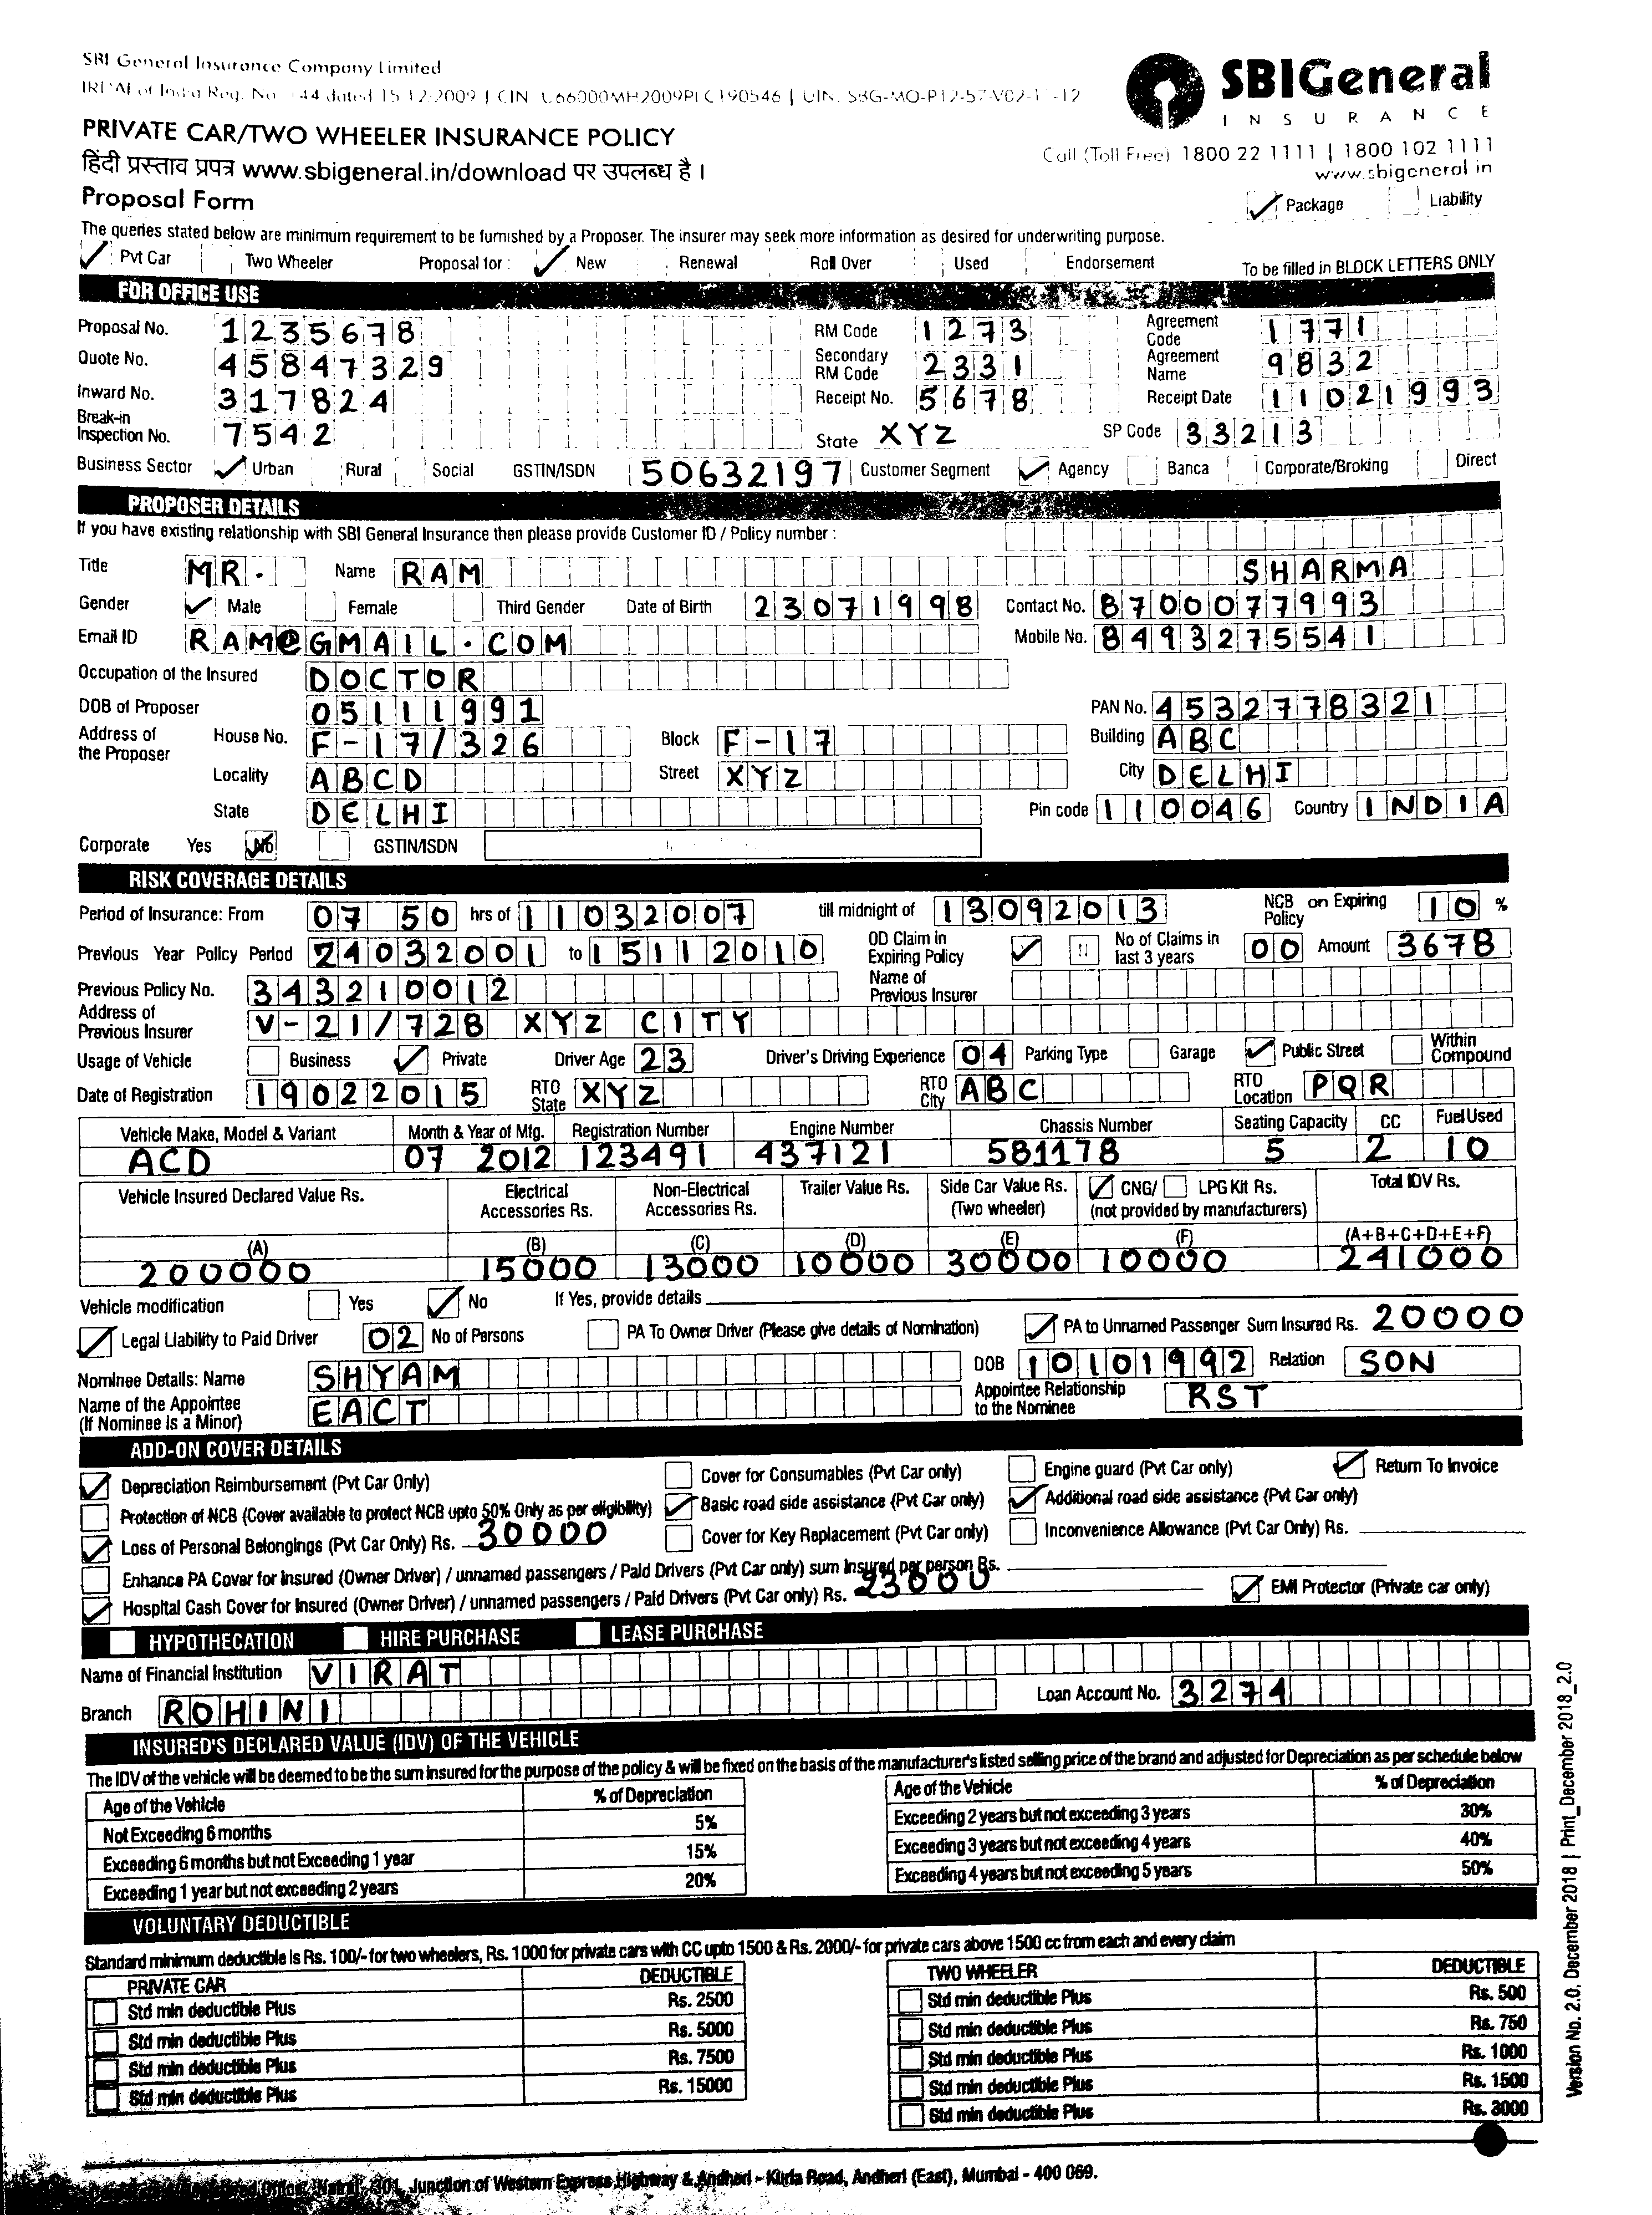 SBI General Insurance Company Limited
SBIGeneral
INSURANCE
PRIVATE CAR/TWO WHEELER INSURANCE POLICY
Call (Toll Free) 1800 22 1111 | 1800 102 1111
हिंदी प्रस्ताव प्रपत्र www.sbigeneral.in/download पर उपलब्ध है ।
www.sbigeneral.in
Proposal Form
Package Liability
The queries stated below are minimum requirement to be furnished by a Proposer. The insurer may seek more information as desired for underwriting purpose.
Pvt Car Two Wheeler Proposal for : New Renewal Roll Over Used Endorsement To be filled in BLOCK LETTERS ONLY
FOR OFFICE USE
Proposal No. 1235678 RM Code 1273 Agreement Code 1771
Quote No. 45847329 Secondary RM Code 2331 Agreement Name 9832
Inward No. 317824 Receipt No. 5678 Receipt Date 11021993
Break-in Inspection No. 7542 State XYZ SP Code 33213
Business Sector Urban Rural Social GSTIN/ISDN 50632197 Customer Segment Agency Banca Corporate/Broking Direct
PROPOSER DETAILS
If you have existing relationship with SBI General Insurance then please provide Customer ID / Policy number :
Title MR. Name RAM SHARMA
Gender Male Female Third Gender Date of Birth 23071998 Contact No. 8700077993
Email ID RAM@GMAIL.COM Mobile No. 8493275541
Occupation of the Insured DOCTOR
DOB of Proposer 05111991 PAN No. 4532778321
Address of the Proposer House No. F-17/326 Block F-17 Building ABC
Locality ABCD Street XYZ City DELHI
State DELHI Pin code 110046 Country INDIA
Corporate Yes No GSTIN/ISDN
RISK COVERAGE DETAILS
Period of Insurance: From 07 50 hrs of 11032007 till midnight of 13092013 NCB on Expiring Policy 10 %
Previous Year Policy Period 24032001 to 15112010 OD Claim in Expiring Policy No of Claims in last 3 years 00 Amount 3678
Previous Policy No. 343210012 Name of Previous Insurer
Address of Previous Insurer V-21/728 XYZ CITY
Usage of Vehicle Business Private Driver Age 23 Driver's Driving Experience 04 Parking Type Garage Public Street Within Compound
Date of Registration 19022015 RTO State XYZ RTO City ABC RTO Location PQR
Vehicle Make, Model & Variant Month & Year of Mfg. Registration Number Engine Number Chassis Number Seating Capacity CC Fuel Used
ACD 07 2012 123491 437121 581178 5 2 10
Vehicle Insured Declared Value Rs. Electrical Accessories Rs. Non-Electrical Accessories Rs. Trailer Value Rs. Side Car Value Rs. (Two wheeler) CNG/ LPG Kit Rs. (not provided by manufacturers) Total IDV Rs.
(A) (B) (C) (D) (E) (F) (A+B+C+D+E+F)
200000 15000 13000 10000 30000 10000 241000
Vehicle modification Yes No If Yes, provide details
Legal Liability to Paid Driver 02 No of Persons PA To Owner Driver (Please give details of Nomination) PA to Unnamed Passenger Sum Insured Rs. 20000
Nominee Details: Name SHYAM DOB 10101992 Relation SON
Name of the Appointee (If Nominee is a Minor) EACT Appointee Relationship to the Nominee RST
ADD-ON COVER DETAILS
Depreciation Reimbursement (Pvt Car Only) Cover for Consumables (Pvt Car only) Engine guard (Pvt Car only) Return To Invoice
Protection of NCB (Cover available to protect NCB upto 50% Only as per eligibility) Basic road side assistance (Pvt Car only) Additional road side assistance (Pvt Car only)
Loss of Personal Belongings (Pvt Car Only) Rs. 30000 Cover for Key Replacement (Pvt Car only) Inconvenience Allowance (Pvt Car Only) Rs.
Enhance PA Cover for Insured (Owner Driver) / unnamed passengers / Paid Drivers (Pvt Car only) sum Insured per person Rs.
Hospital Cash Cover for Insured (Owner Driver) / unnamed passengers / Paid Drivers (Pvt Car only) Rs. 23000 EMI Protector (Private car only)
HYPOTHECATION HIRE PURCHASE LEASE PURCHASE
Name of Financial Institution VIRAT
Branch ROHINI Loan Account No. 3274
INSURED'S DECLARED VALUE (IDV) OF THE VEHICLE
The IDV of the vehicle will be deemed to be the sum insured for the purpose of the policy & will be fixed on the basis of the manufacturer's listed selling price of the brand and adjusted for Depreciation as per schedule below
Age of the Vehicle % of Depreciation Age of the Vehicle % of Depreciation
Not Exceeding 6 months 5% Exceeding 2 years but not exceeding 3 years 30%
Exceeding 6 months but not Exceeding 1 year 15% Exceeding 3 years but not exceeding 4 years 40%
Exceeding 1 year but not exceeding 2 years 20% Exceeding 4 years but not exceeding 5 years 50%
VOLUNTARY DEDUCTIBLE
Standard minimum deductible is Rs. 100/- for two wheelers, Rs. 1000 for private cars with CC upto 1500 & Rs. 2000/- for private cars above 1500 cc from each and every claim
PRIVATE CAR DEDUCTIBLE TWO WHEELER DEDUCTIBLE
Std min deductible Plus Rs. 2500 Std min deductible Plus Rs. 500
Std min deductible Plus Rs. 5000 Std min deductible Plus Rs. 750
Std min deductible Plus Rs. 7500 Std min deductible Plus Rs. 1000
Std min deductible Plus Rs. 15000 Std min deductible Plus Rs. 1500
Std min deductible Plus Rs. 3000
Junction of Western Express Highway & Andheri - Kurla Road, Andheri (East), Mumbai - 400 069.
Version No. 2.0, December 2018 | Print_December 2018_2.0